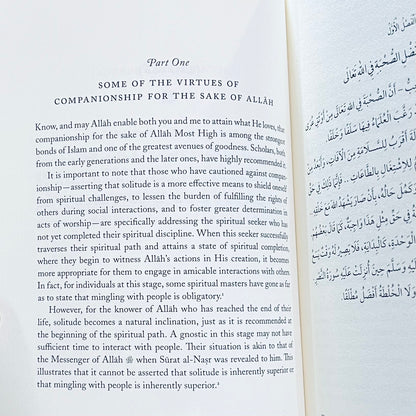 Part One
SOME OF THE VIRTUES OF
COMPANIONSHIP FOR THE SAKE OF ALLĀH
Know, and may Allāh enable both you and me to attain what He loves, that
companionship for the sake of Allāh Most High is among the strongest
bonds of Islam and one of the greatest avenues of goodness. Scholars, both
from the early generations and the later ones, have highly recommended it.
It is important to note that those who have cautioned against compan-
ionship—asserting that solitude is a more effective means to shield oneself
from spiritual challenges, to lessen the burden of fulfilling the rights of
others during social interactions, and to foster greater determination in
acts of worship—are specifically addressing the spiritual seeker who has
not yet completed their spiritual discipline. When this seeker successfully
traverses their spiritual path and attains a state of spiritual completion,
where they begin to witness Allāh's actions in His creation, it becomes
more appropriate for them to engage in amicable interactions with others.
In fact, for individuals at this stage, some spiritual masters have gone as far
as to state that mingling with people is obligatory.¹
However, for the knower of Allāh who has reached the end of their
life, solitude becomes a natural inclination, just as it is recommended at
the beginning of the spiritual path. A gnostic in this stage may not have
sufficient time to interact with people. Their situation is akin to that of
the Messenger of Allāh ﷺ when Sūrat al-Naṣr was revealed to him. This
illustrates that it cannot be asserted that solitude is inherently superior or
that mingling with people is inherently superior.²
الفصل الأول
فضل الصحبة في الله تعالى
أن الصحبة في الله تعالى من أوثق عرى
رغب العلماء فيها سلفا وخلفا
أقرب للسلامة من الآفات، وأبعد عن
للاشتغال بالطاعات
كمل حاله، بأن صار يشهد الله
حق من مثل هذا واجبة،
الوحدة، كالبداية،
وسلم حين أنزلت عليه سورة النصر
ولا الخلطة أفضل مطلقا